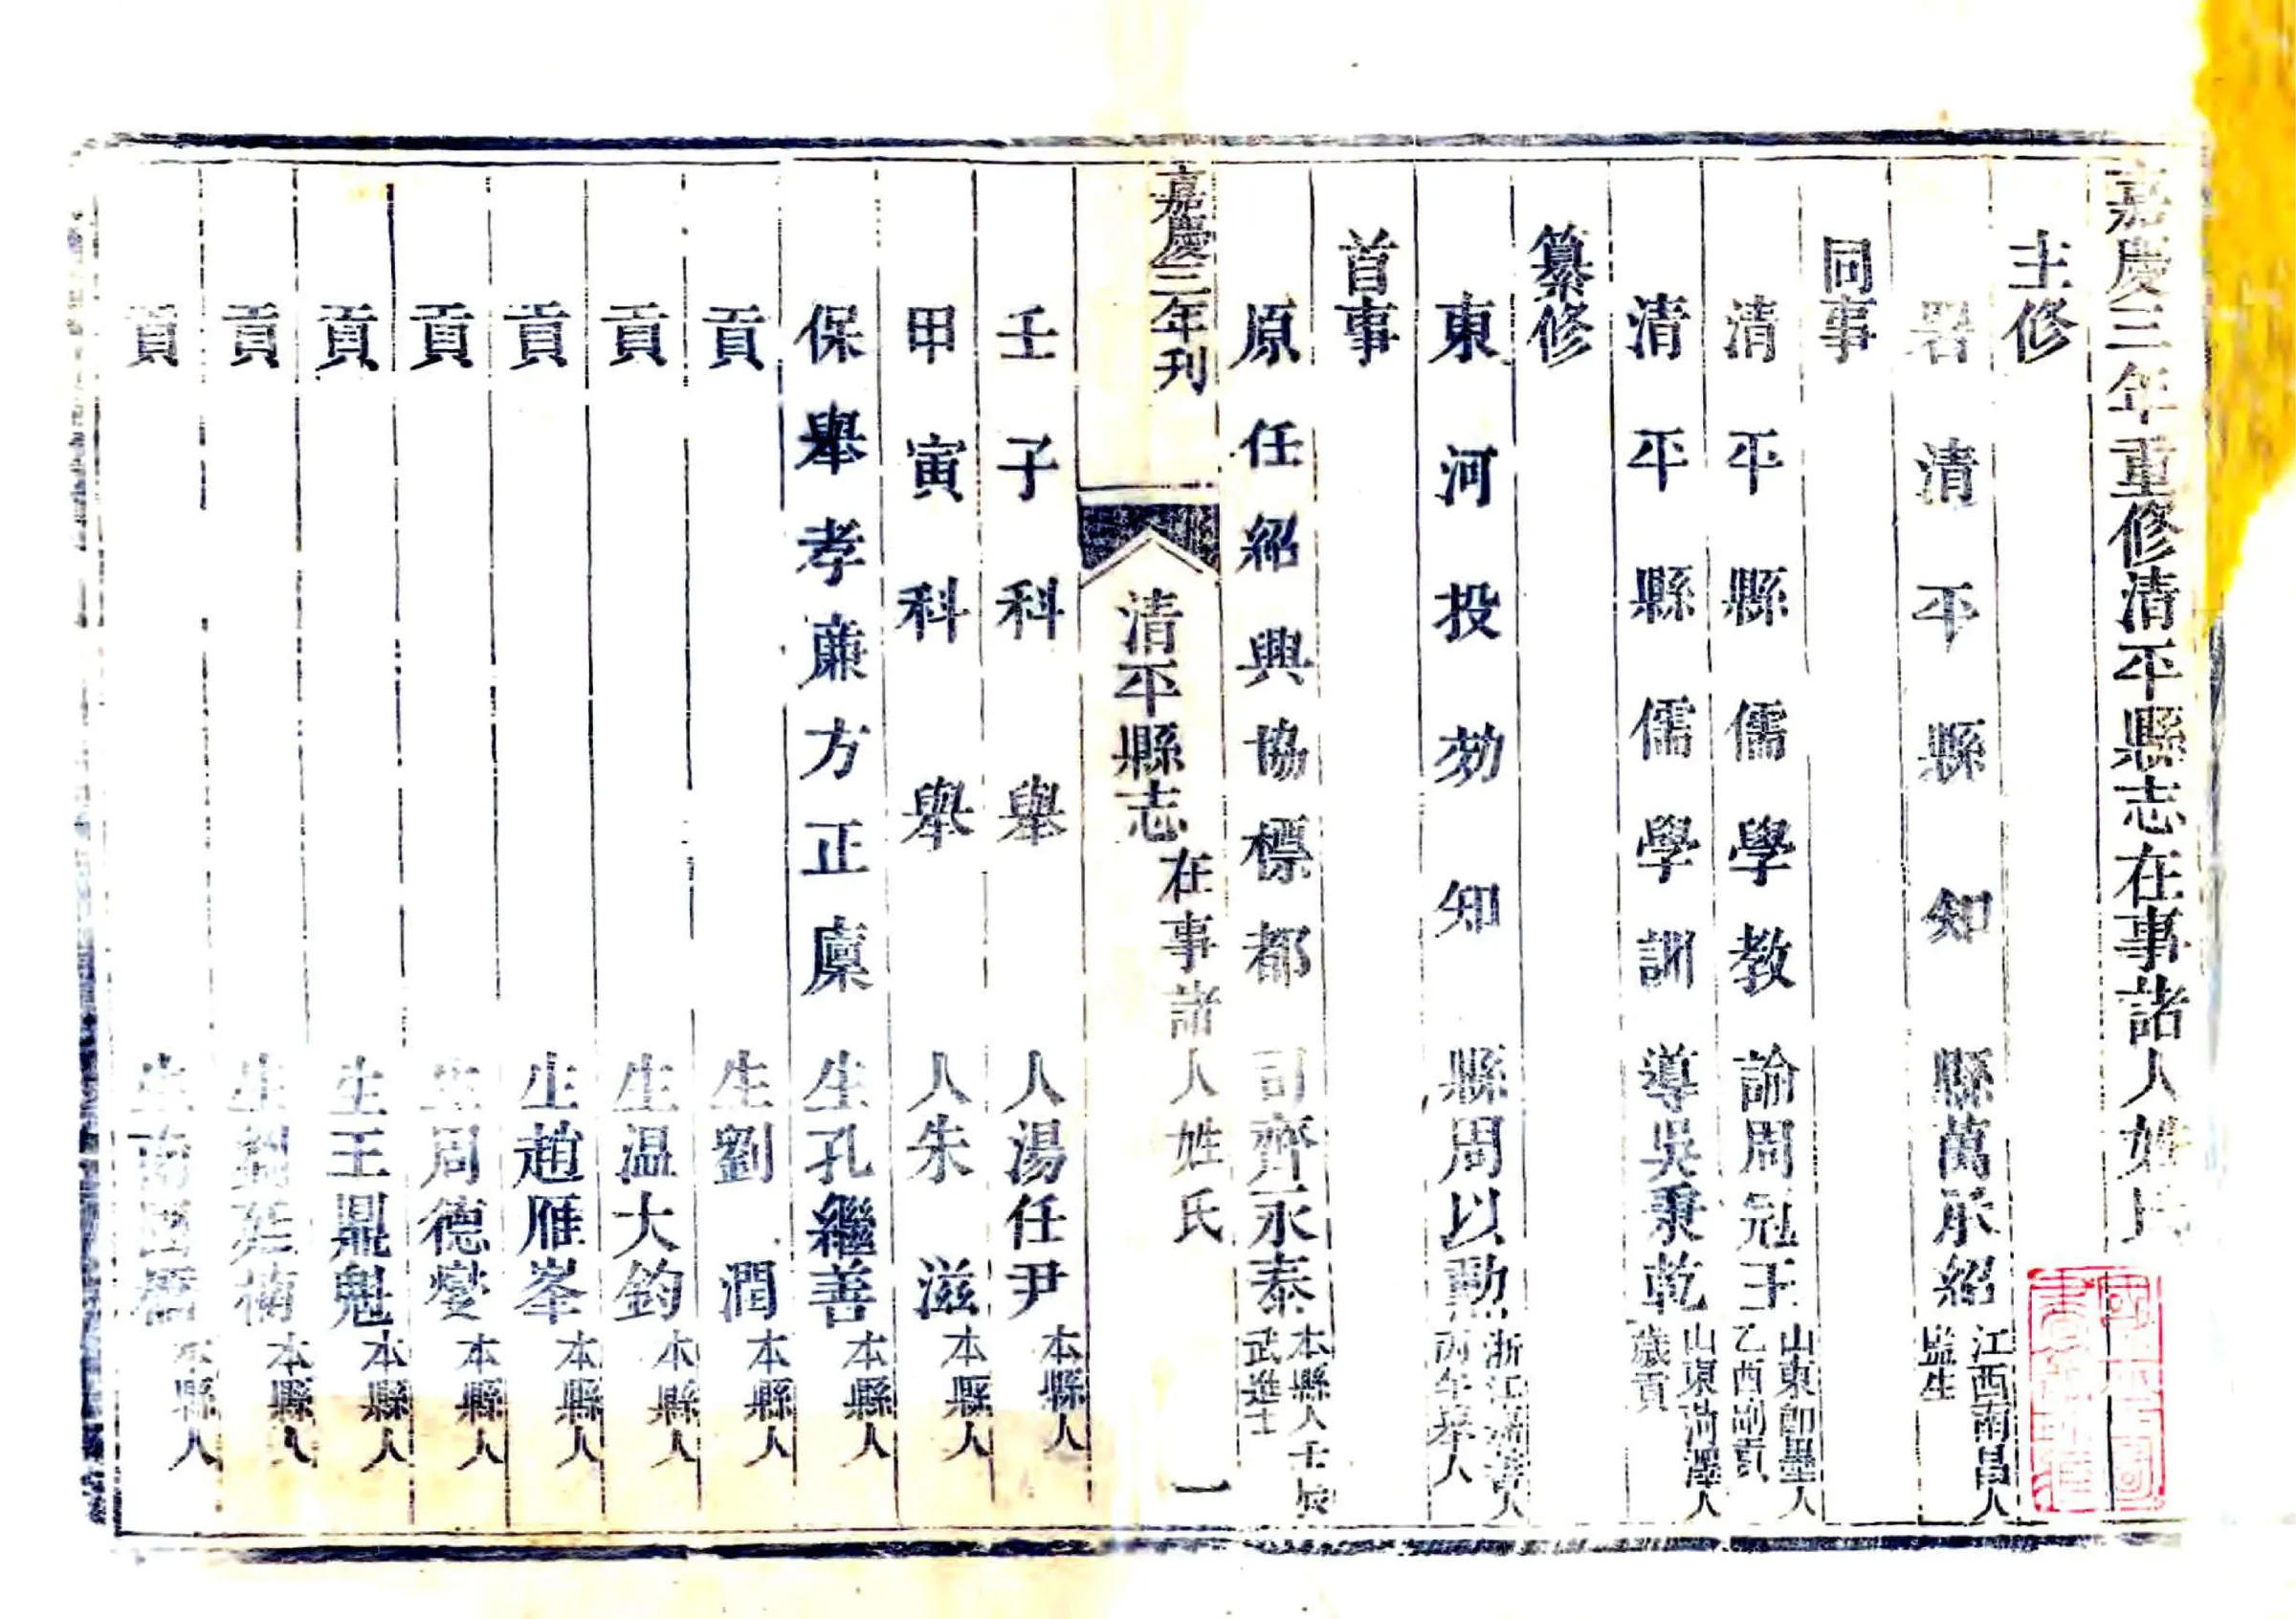 嘉慶三年重修清平縣志在事諸人姓氏
主修
署清平縣知縣萬承紹江西南昌人監生
同事
清平縣儒學教諭周冠玉山東即墨人乙酉副貢
清平縣儒學訓導吳秉乾山東菏澤人歲貢
纂修
東河投効知縣周以勳浙江人丙午舉人
首事
原任紹興協標都司齊永泰本縣人壬辰武進士
嘉慶三年刊
清平縣志 在事諸人姓氏 一
壬子科舉人湯任尹本縣人
甲寅科舉人朱滋本縣人
保舉孝廉方正廩生孔繼善本縣人
貢生劉潤本縣人
貢生温大鈞本縣人
貢生趙雁峯本縣人
貢生周德燮本縣人
貢生王鼎魁本縣人
貢生劉廷楠本縣人
貢生本縣人